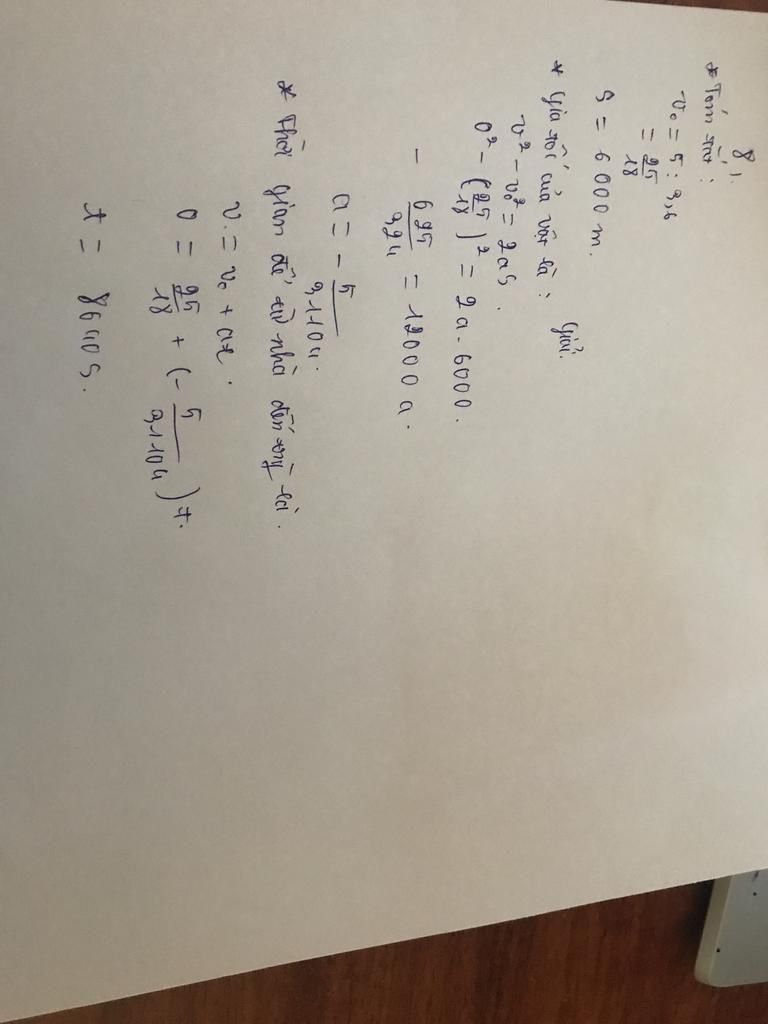 8).
* Tóm tắt:
v₀ = 5 : 3,6
= 25/18
S = 6000 m.
Giải.
* Gia tốc của vật là:
v² - v₀² = 2aS.
0² - (25/18)² = 2a . 6000.
- 625/324 = 12000 a.
a = - 5/31104.
* Thời gian để từ nhà đến trg là.
v = v₀ + at.
0 = 25/18 + (- 5/31104) t.
t = 8640 s.